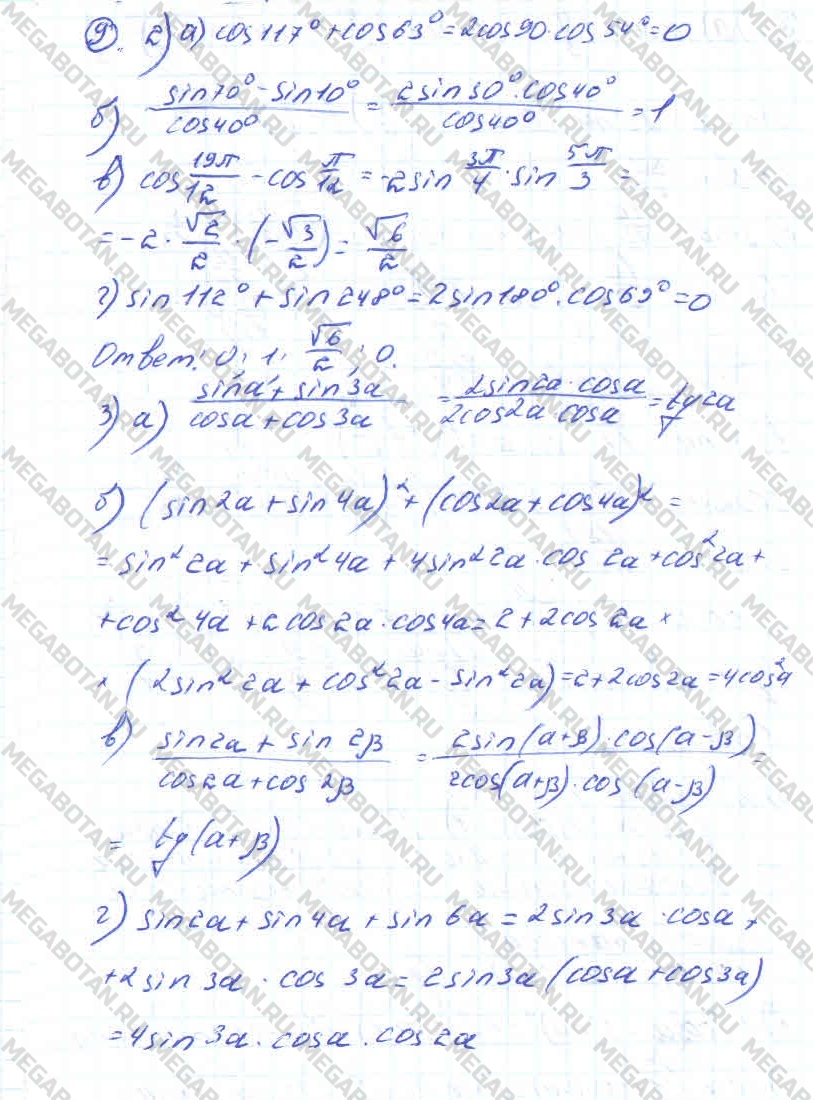 9. 2) а) cos117° + cos63° = 2cos90·cos54° = 0
б) (sin70° - sin10°)/cos40° = (2sin30°·cos40°)/cos40° = 1
в) cos 19π/12 - cos π/12 = -2sin 3π/4 · sin 5π/3 =
= -2 · √2/2 · (-√3/2) = √6/2
г) sin112° + sin248° = 2sin180°·cos69° = 0
Ответ: 0; 1; √6/2; 0.
3) а) (sina + sin3a)/(cosa + cos3a) = (2sin2a·cosa)/(2cos2a·cosa) = tg2a
б) (sin2a + sin4a)² + (cos2a + cos4a)² =
= sin²2a + sin²4a + 4sin²2a·cos2a + cos²2a +
+ cos²4a + 2cos2a·cos4a = 2 + 2cos2a ×
× (2sin²2a + cos²2a - sin²2a) = 2 + 2cos2a = 4cos²a
в) (sin2a + sin2β)/(cos2a + cos2β) = (2sin(a+β)·cos(a-β))/(2cos(a+β)·cos(a-β)) =
= tg(a+β)
г) sin2a + sin4a + sin6a = 2sin3a·cosa +
+ 2sin3a·cos3a = 2sin3a(cosa + cos3a)
= 4sin3a·cosa·cos2a
MEGABOTAN.RU